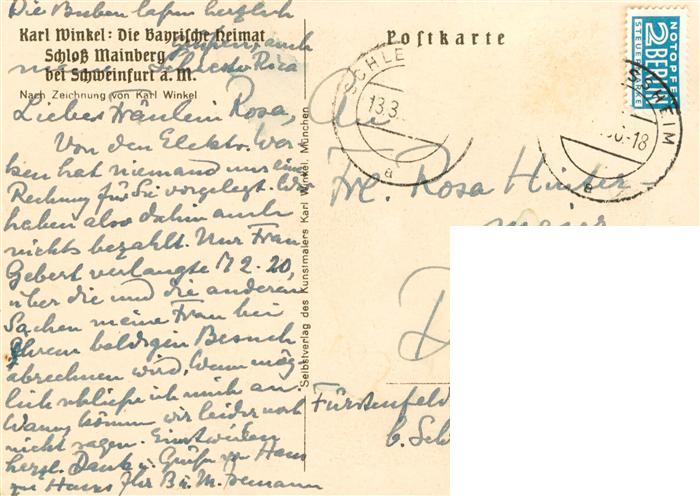 Die Buben lassen herzlich
grüßen, auch
Karl Winkel: Die Bayrische Heimat
Schloß Mainberg
bei Schweinfurt a. M.
Nach Zeichnung von Karl Winkel
Liebes Fräulein Rosa,
Von den Elektr. Wer-
ken hat niemand uns eine
Rechnung für Sie vorgelegt. Wir
haben also dahin auch
nichts bezahlt. Nur Frau
Gebert verlangte M 2.20,
über die und die anderen
Sachen meine Frau bei
Ihrem baldigen Besuch
abrechnen wird, wenn mög-
lich schließe ich mich an.
Wann können wir leider noch
nicht sagen. Einstweilen
herzl. Dank u. Grüße von Haus
zu Haus Ihr B. u. M.
Selbstverlag des Kunstmalers Karl Winkel, München
Postkarte
SCHLE
13.3.
a
SHEIM
-18
a
NOTOPFER
2 BERLIN
STEUERMARKE
An
Frl. Rosa Hinter-
meier
D
Fürstenfeld
b. Sch